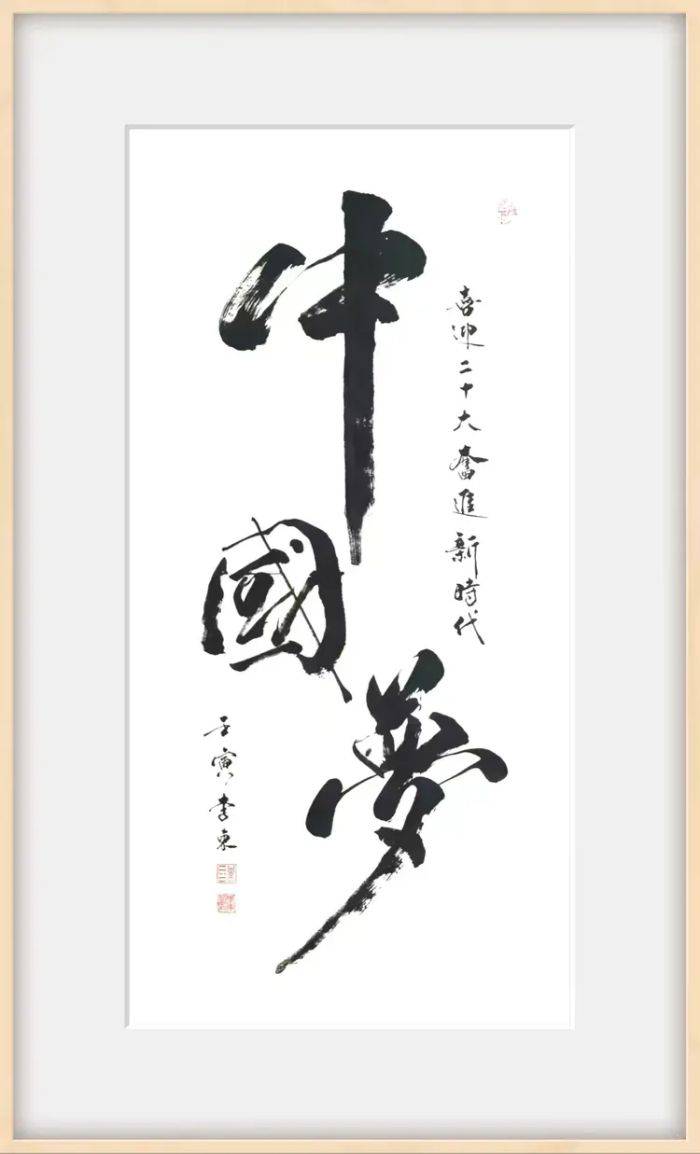 喜迎二十大奮進新時代
中國夢
壬寅李東